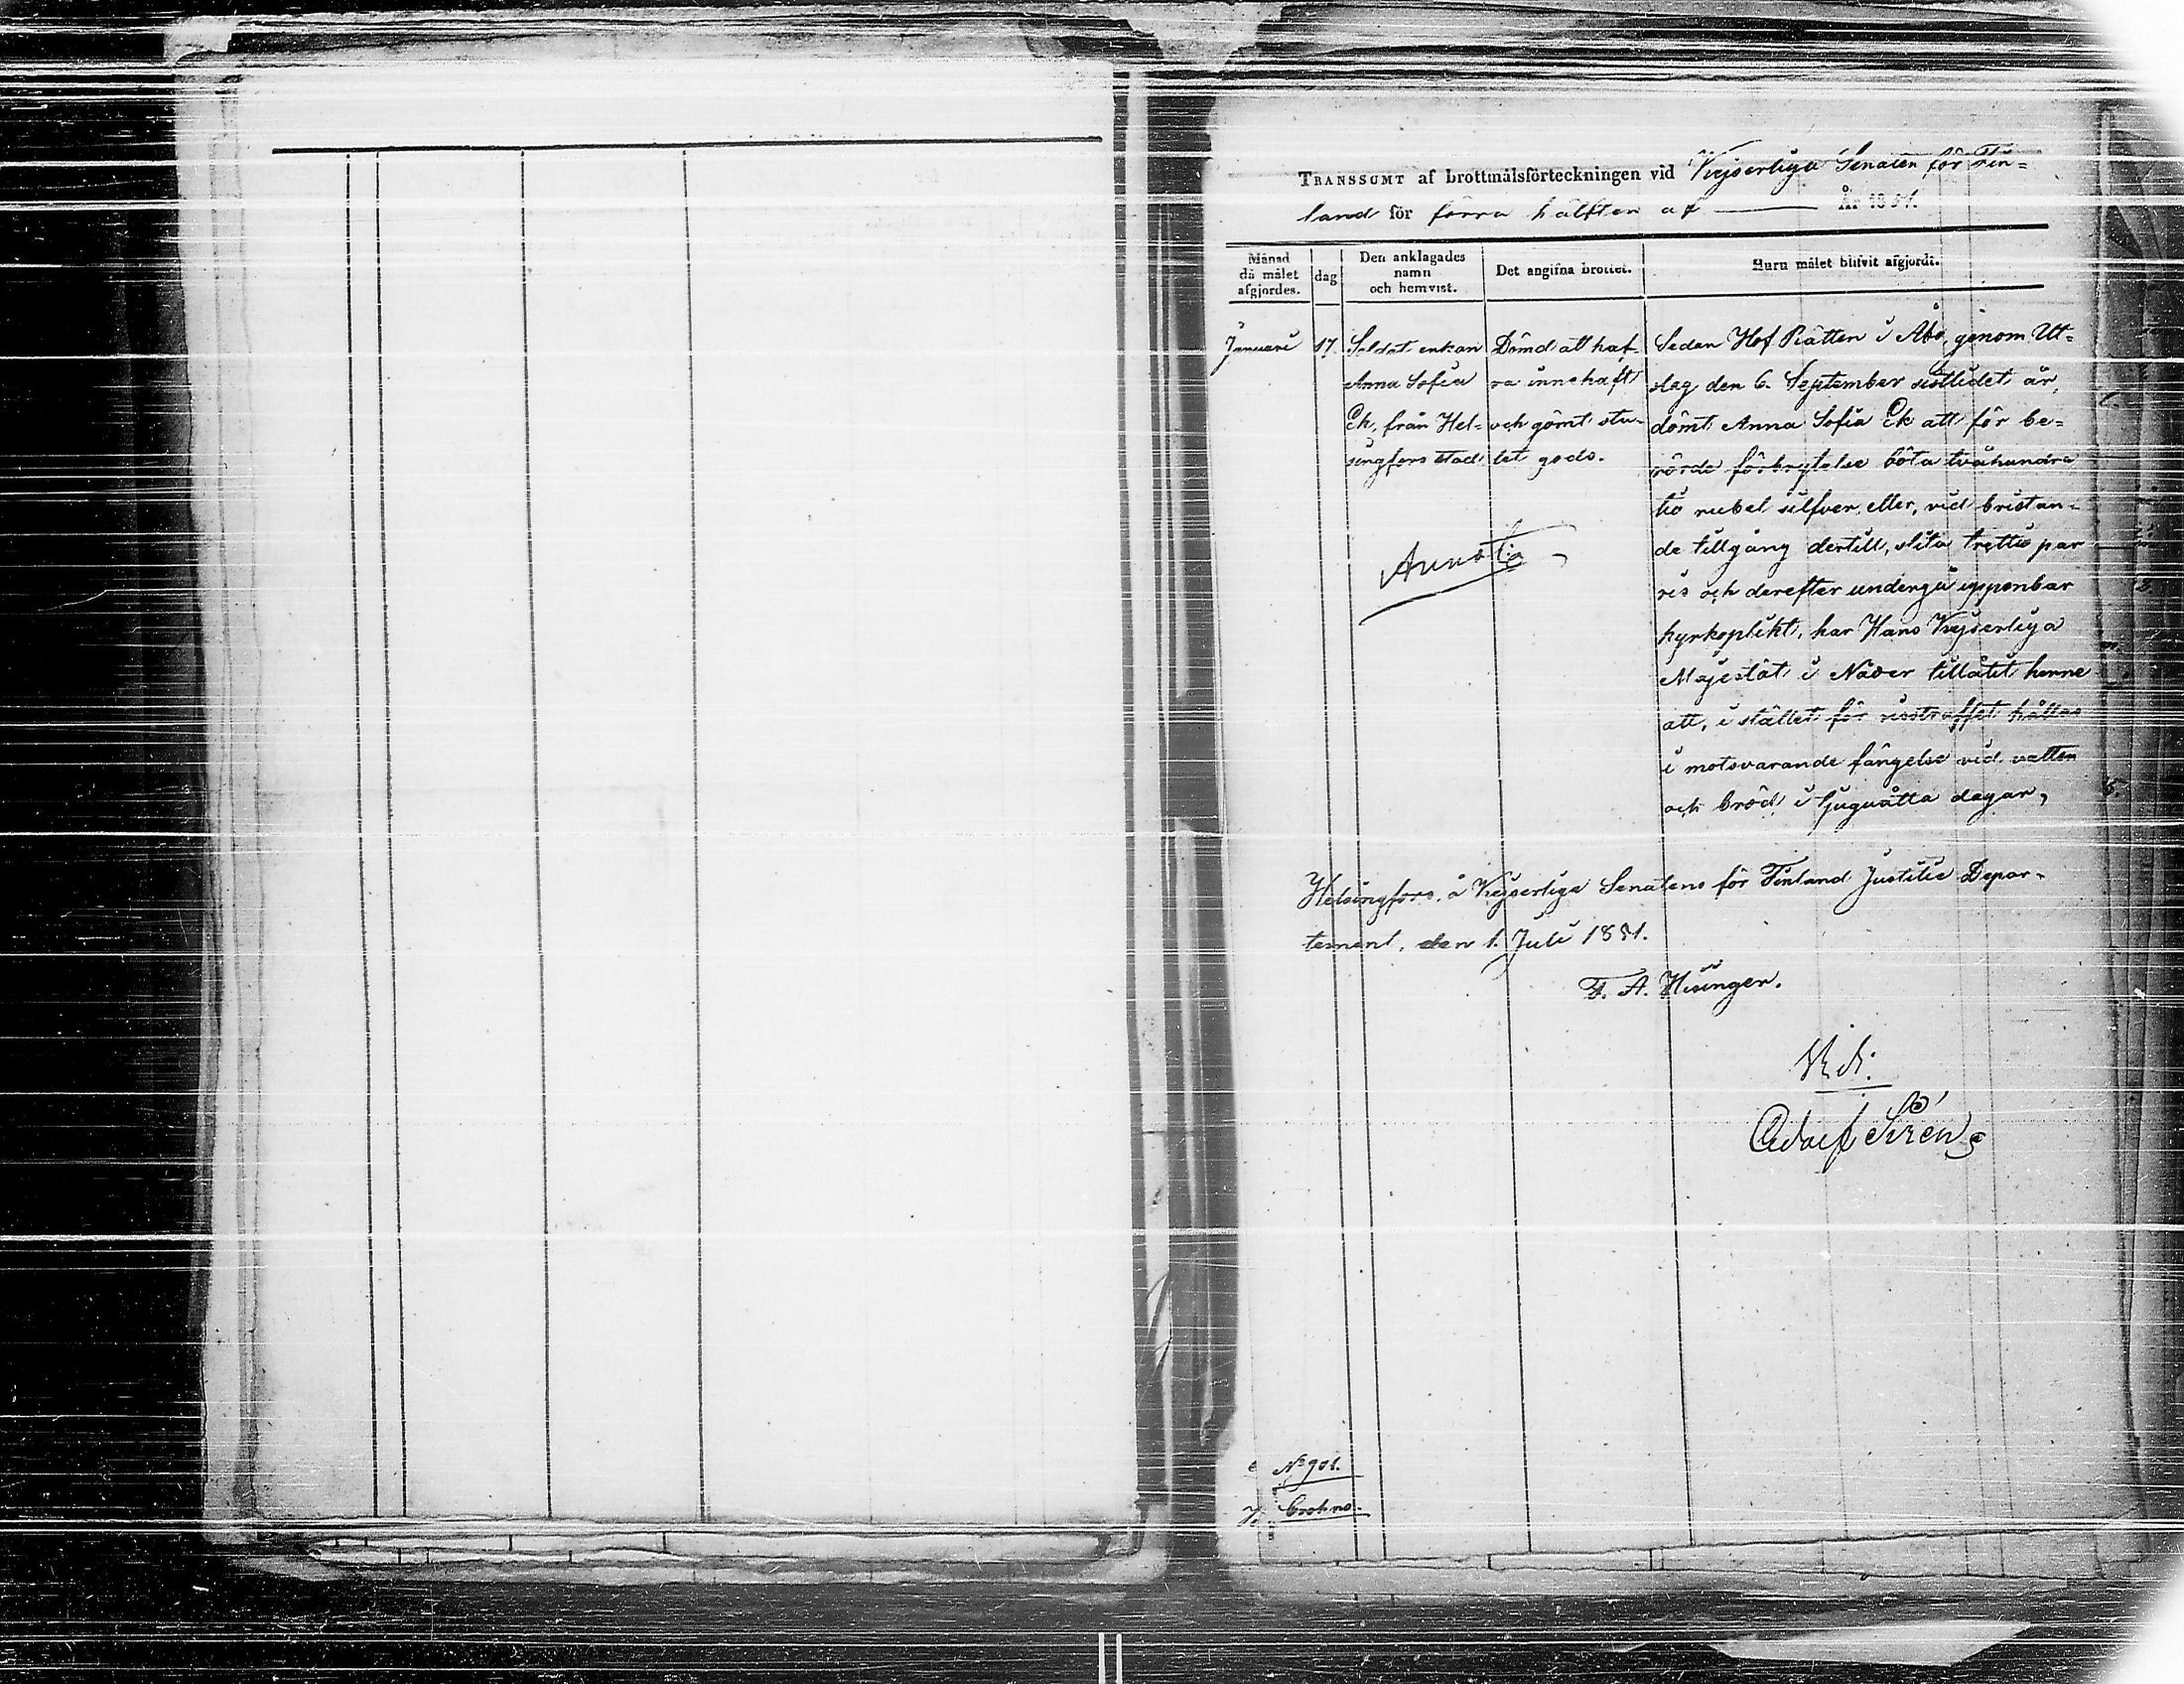 TRANSSUMT af brottmålsförteckningen vid Kejserliga Senaten för Fin=
land för förra hälften af — År 1851.
Månad då målet afgjordes. dag Den anklagades namn och hemvist. Det angifna brottet. Huru målet blifvit afgjordt.
Januari 17. Soldatenkan Dömd att haf- Sedan Hof Rätten i Åbo, genom Ut=
Anna Sofia va innehaft slag den 6. September sistlidet år,
Ek, från Hel= och gömt stu- dömt Anna Sofia Ek att för be=
singfors stad let gods. rörde förbrytelse böta tvåhundra
tio rubel silfver eller, vid bristan=
de tillgång dertill, slita trettio par
ris och derefter undergå uppenbar
kyrkoplikt, har Hans Kejserliga
Majestät i Nåder tillåtit henne
att, i stället för risstraffet hållas
i motsvarande fängelse vid vatten
och bröd i tjuguåtta dagar,
Helsingfors, å Kejserliga Senatens för Finland Justitie Depar-
tement, den 1. Juli 1851.
F. A. Hisinger.
Vidi:
Adolf Sirén
№ 901.